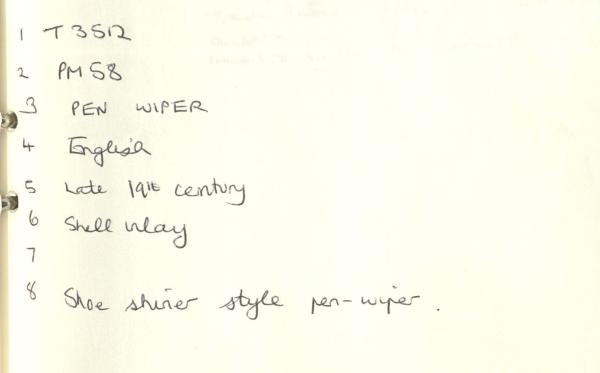 1 T3512
2 PM 58
3 PEN WIPER
4 English
5 Late 19th century
6 Shell inlay
7
8 Shoe shiner style pen-wiper.